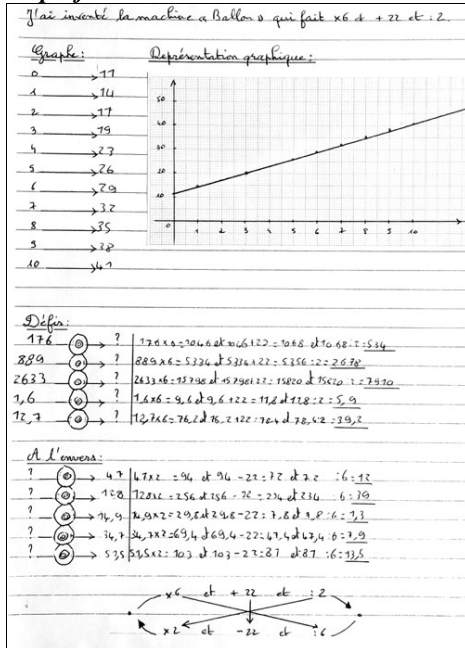 J'ai inventé la machine « Ballon » qui fait ×6 et +22 et :2.
Graphe:
Représentation graphique:
0 → 11
1 → 14
2 → 17
3 → 19
4 → 23
5 → 26
6 → 29
7 → 32
8 → 35
9 → 38
10 → 41
50
40
30
20
10
0 1 2 3 4 5 6 7 8 9 10
Défis:
176 → ? 176×6=1046 et 1046+22=1068 et 1068:2=534
889 → ? 889×6=5334 et 5334+22=5356:2=2678
2633 → ? 2633×6=15798 et 15798+22=15820 et 15820:2=7910
1,6 → ? 1,6×6=9,6 et 9,6+22=11,8 et 11,8:2=5,9
12,7 → ? 12,7×6=76,2 et 76,2+22=78,4 et 78,4:2=39,2
A l'envers:
? → 47 47×2=94 et 94-22=72 et 72:6=12
? → 128 128×2=256 et 256-22=234 et 234:6=39
? → 14,9 14,9×2=29,8 et 29,8-22=7,8 et 7,8:6=1,3
? → 34,7 34,7×2=69,4 et 69,4-22=47,4 et 47,4:6=7,9
? → 51,5 51,5×2=103 et 103-22=81 et 81:6=13,5
×6 et +22 et :2
×2 et -22 et :6